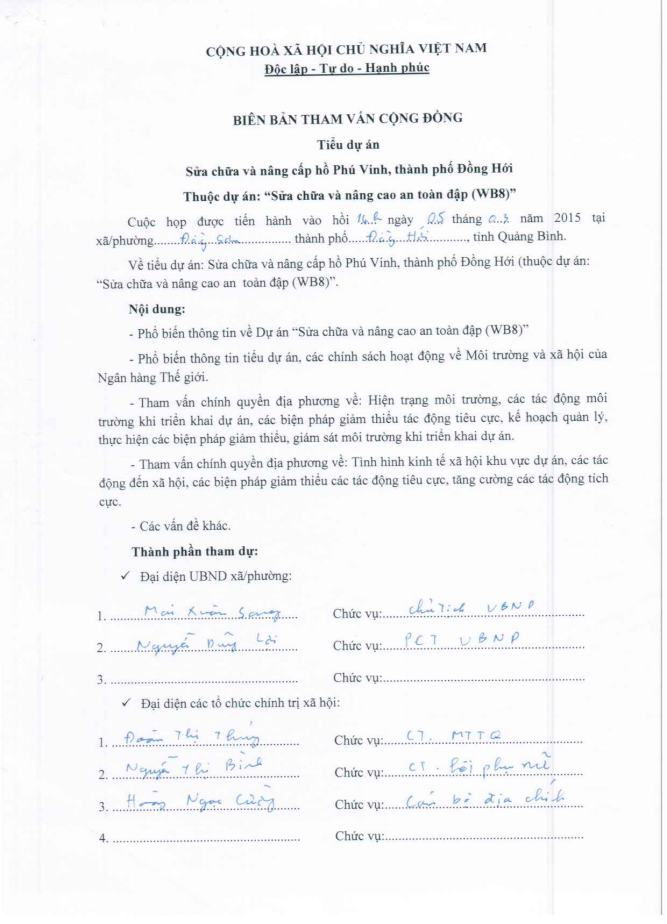 CỘNG HOÀ XÃ HỘI CHỦ NGHĨA VIỆT NAM
Độc lập - Tự do - Hạnh phúc
BIÊN BẢN THAM VẤN CỘNG ĐỒNG
Tiểu dự án
Sửa chữa và nâng cấp hồ Phú Vinh, thành phố Đồng Hới
Thuộc dự án: “Sửa chữa và nâng cao an toàn đập (WB8)”
Cuộc họp được tiến hành vào hồi 14h ngày 05 tháng năm 2015 tại
xã/phường.......Đồng Sơn................ thành phố.....Đồng Hới.........., tỉnh Quảng Bình.
Về tiểu dự án: Sửa chữa và nâng cấp hồ Phú Vinh, thành phố Đồng Hới (thuộc dự án:
“Sửa chữa và nâng cao an toàn đập (WB8)”.
Nội dung:
- Phổ biến thông tin về Dự án “Sửa chữa và nâng cao an toàn đập (WB8)”
- Phổ biến thông tin tiểu dự án, các chính sách hoạt động về Môi trường và xã hội của
Ngân hàng Thế giới.
- Tham vấn chính quyền địa phương về: Hiện trạng môi trường, các tác động môi
trường khi triển khai dự án, các biện pháp giảm thiểu tác động tiêu cực, kế hoạch quản lý,
thực hiện các biện pháp giảm thiểu, giám sát môi trường khi triển khai dự án.
- Tham vấn chính quyền địa phương về: Tình hình kinh tế xã hội khu vực dự án, các tác
động đến xã hội, các biện pháp giảm thiểu các tác động tiêu cực, tăng cường các tác động tích
cực.
- Các vấn đề khác.
Thành phần tham dự:
✓ Đại diện UBND xã/phường:
1. Mai Xuân Chức vụ: Chủ tịch UBNP
2. Nguyễn Dũng Lợi Chức vụ: PCT UBNP
3. Chức vụ:
✓ Đại diện các tổ chức chính trị xã hội:
1. Đoàn Thị Chức vụ: CT. MTTQ
2. Nguyễn Thị Bình Chức vụ: CT. hội phụ nữ
3. Hoàng Ngọc Chức vụ: Cán bộ địa chính
4. Chức vụ: